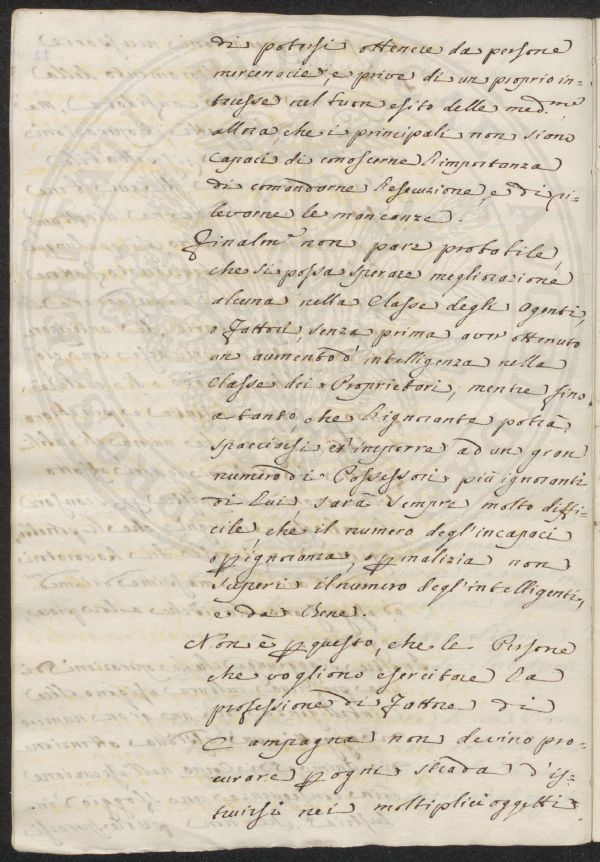 di potersi ottenere da persone
mercenarie, e prive di un proprio in=
teresse nel buon esito delle med.me
allora, che i principali non siano
capaci di conoscerne l'importanza
di comandarne l'esecuzione, e di ri=
levarne le mancanze.
Finalm.e non pare probabile,
che si possa sperare megliorazione
alcuna nella Classe degli Agenti,
o Fattori, senza prima aver ottenuto
un aumento d'intelligenza nella
Classe dei Proprietari, mentre fino
a tanto, che l'ignorante potrà
spacciarsi, ed imporre ad un gran
numero di Possessori più ignoranti
di Lui, sarà sempre molto diffi=
cile, che il numero degl'incapaci
o p ignoranza, o p malizia non
superi il numero degl'intelligenti,
e da bene.
Non è p questo, che le Persone
che vogliono esercitare la
professione di Fattore di
Campagna non devino pro=
curare p ogni strada d'is=
truirsi nei moltiplici oggetti